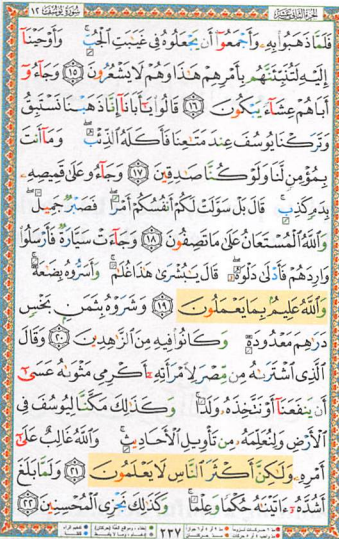 الجزء الثاني عشر
سُورَةُ يُوسُفَ ١٢
فَلَمَّا ذَهَبُوا۟ بِهِۦ وَأَجْمَعُوٓا۟ أَن يَجْعَلُوهُ فِى غَيَـٰبَتِ ٱلْجُبِّ ۚ وَأَوْحَيْنَآ
إِلَيْهِ لَتُنَبِّئَنَّهُم بِأَمْرِهِمْ هَـٰذَا وَهُمْ لَا يَشْعُرُونَ ١٥ وَجَآءُوٓ
أَبَاهُمْ عِشَآءً يَبْكُونَ ١٦ قَالُوا۟ يَـٰٓأَبَانَآ إِنَّا ذَهَبْنَا نَسْتَبِقُ
وَتَرَكْنَا يُوسُفَ عِندَ مَتَـٰعِنَا فَأَكَلَهُ ٱلذِّئْبُ ۖ وَمَآ أَنتَ
بِمُؤْمِنٍ لَّنَا وَلَوْ كُنَّا صَـٰدِقِينَ ١٧ وَجَآءُو عَلَىٰ قَمِيصِهِۦ
بِدَمٍ كَذِبٍ ۚ قَالَ بَلْ سَوَّلَتْ لَكُمْ أَنفُسُكُمْ أَمْرًا ۖ فَصَبْرٌ جَمِيلٌ ۖ
وَٱللَّهُ ٱلْمُسْتَعَانُ عَلَىٰ مَا تَصِفُونَ ١٨ وَجَآءَتْ سَيَّارَةٌ فَأَرْسَلُوا۟
وَارِدَهُمْ فَأَدْلَىٰ دَلْوَهُۥ ۖ قَالَ يَـٰبُشْرَىٰ هَـٰذَا غُلَـٰمٌ ۚ وَأَسَرُّوهُ بِضَـٰعَةً ۚ
وَٱللَّهُ عَلِيمٌۢ بِمَا يَعْمَلُونَ ١٩ وَشَرَوْهُ بِثَمَنٍۭ بَخْسٍ
دَرَٰهِمَ مَعْدُودَةٍ وَكَانُوا۟ فِيهِ مِنَ ٱلزَّٰهِدِينَ ٢٠ وَقَالَ
ٱلَّذِى ٱشْتَرَىٰهُ مِن مِّصْرَ لِٱمْرَأَتِهِۦٓ أَكْرِمِى مَثْوَىٰهُ عَسَىٰٓ
أَن يَنفَعَنَآ أَوْ نَتَّخِذَهُۥ وَلَدًا ۚ وَكَذَٰلِكَ مَكَّنَّا لِيُوسُفَ فِى
ٱلْأَرْضِ وَلِنُعَلِّمَهُۥ مِن تَأْوِيلِ ٱلْأَحَادِيثِ ۚ وَٱللَّهُ غَالِبٌ عَلَىٰٓ
أَمْرِهِۦ وَلَـٰكِنَّ أَكْثَرَ ٱلنَّاسِ لَا يَعْلَمُونَ ٢١ وَلَمَّا بَلَغَ
أَشُدَّهُۥٓ ءَاتَيْنَـٰهُ حُكْمًا وَعِلْمًا ۚ وَكَذَٰلِكَ نَجْزِى ٱلْمُحْسِنِينَ ٢٢
٢٣٧